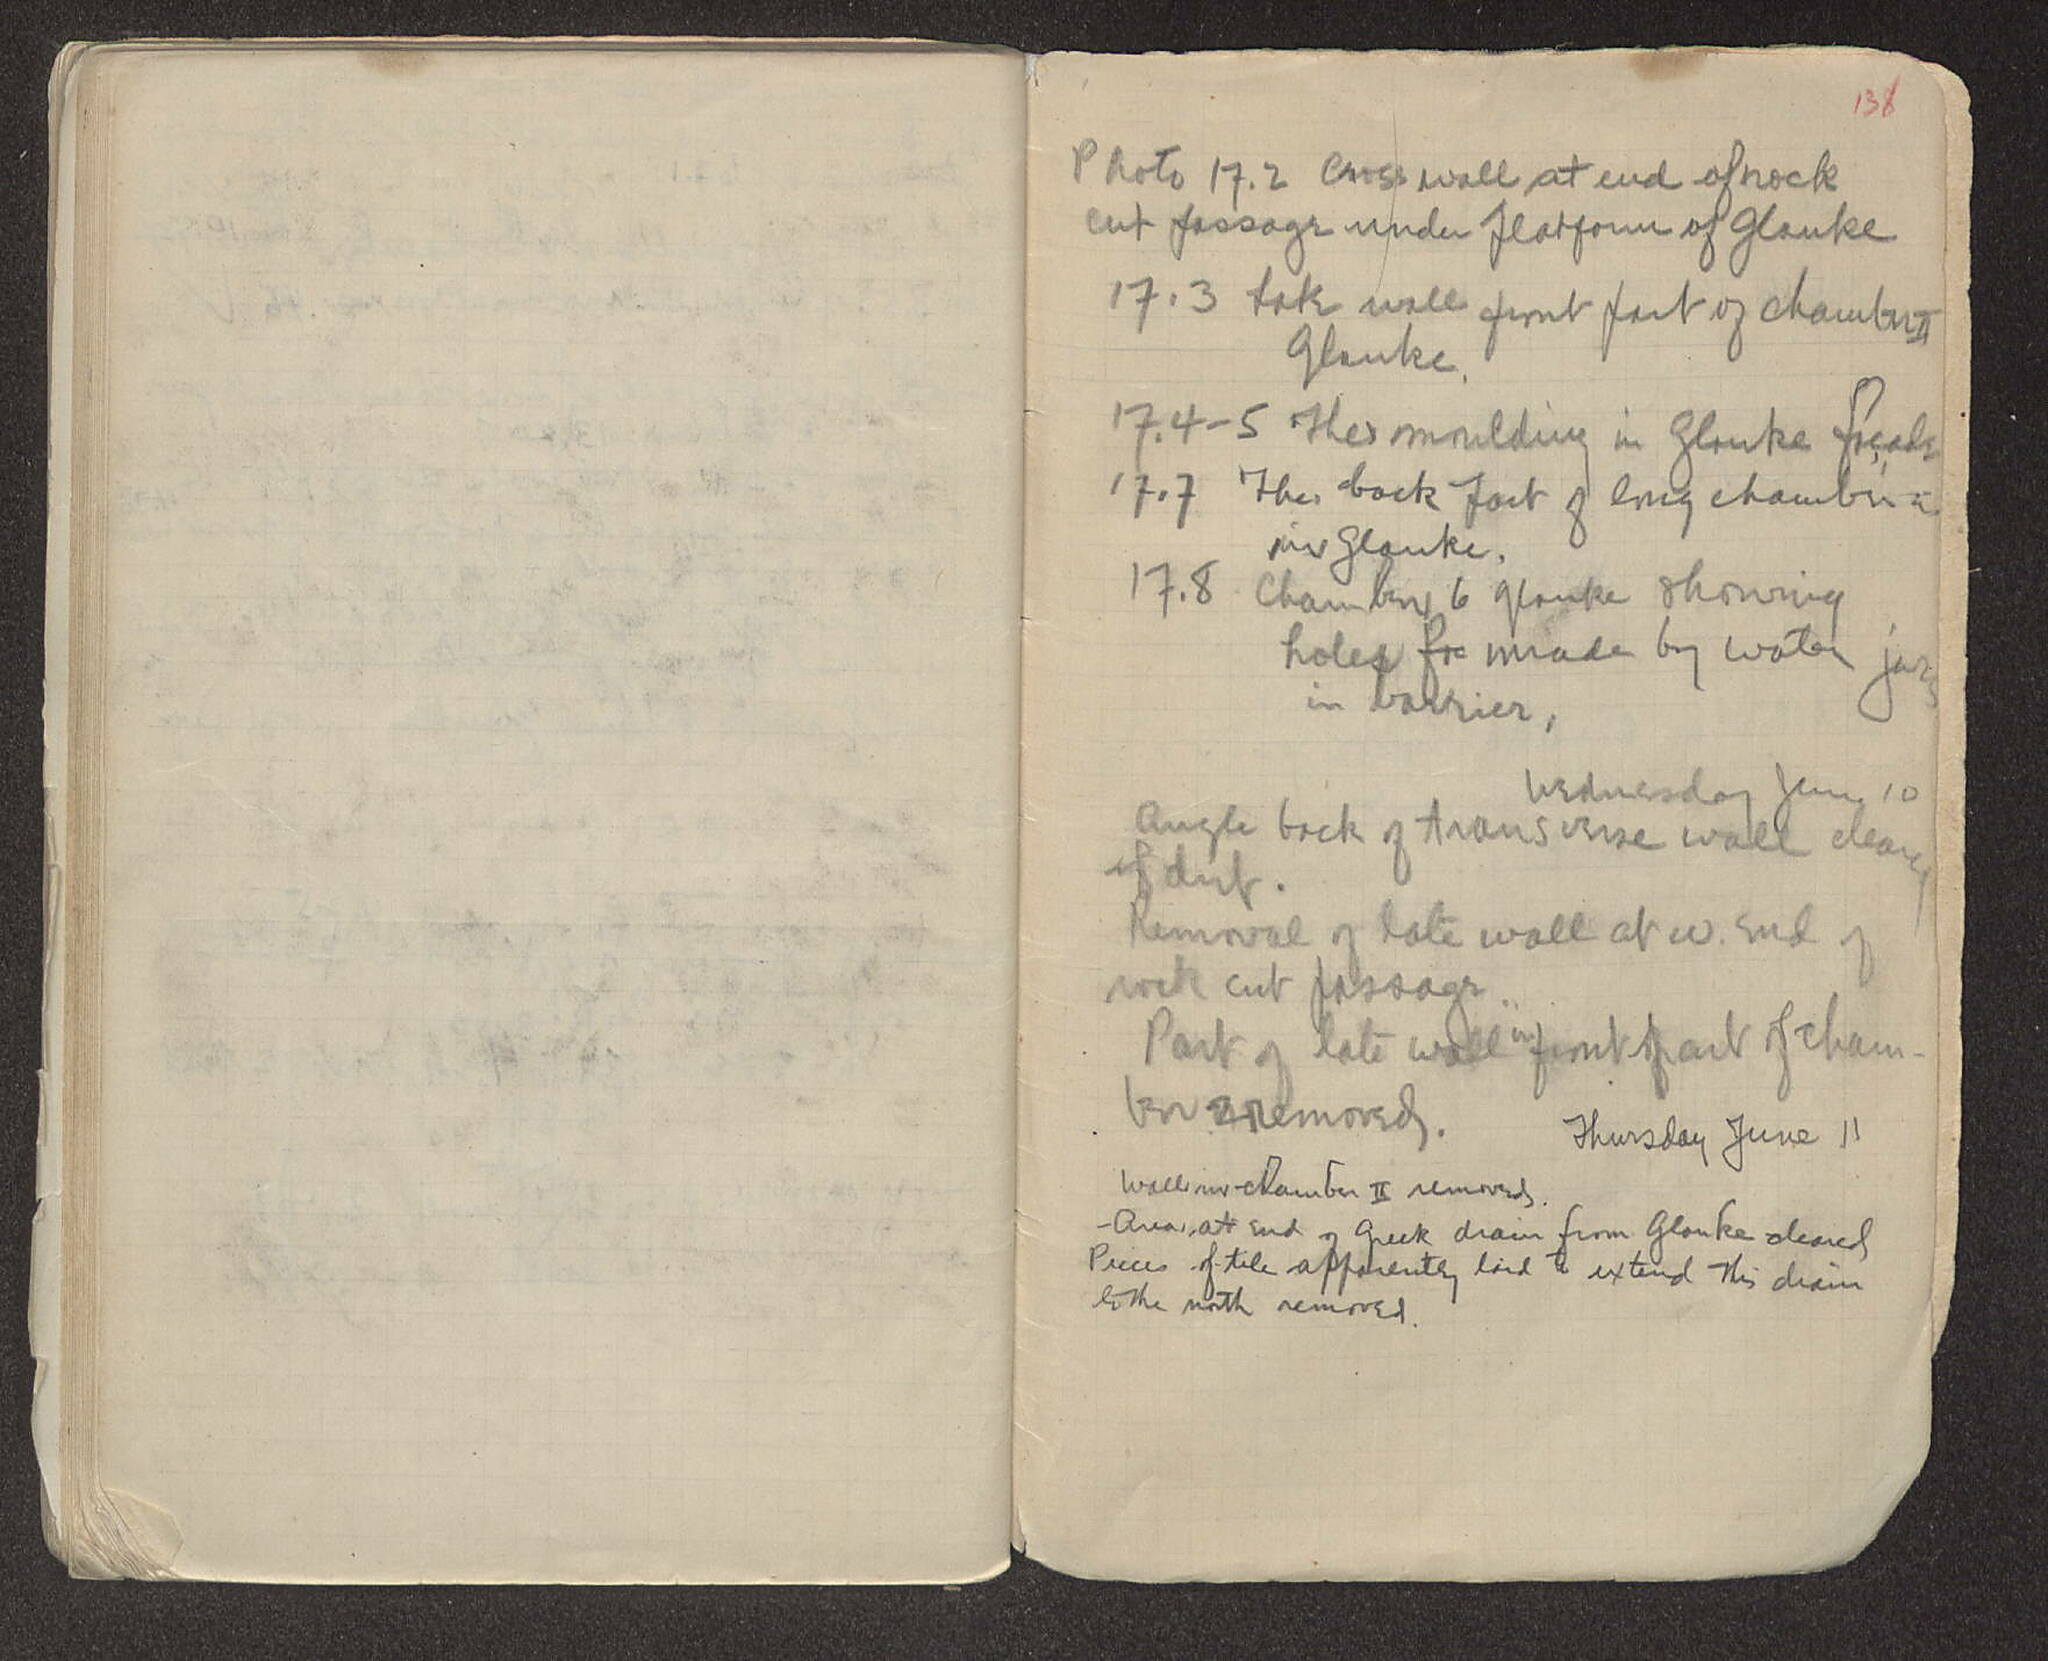 138
Photo 17.2 Cross wall at end of rock
cut passage under platform of Glauke
17.3 late wall front part of chamber II
Glauke.
17.4-5 The moulding in Glauke façade
17.7 The back part of long chamber
in Glauke.
17.8 Chamber 6 Glauke showing
holes for made by water jars
in barrier.
Wednesday June 10
Angle back of transverse wall cleared
of dirt.
Removal of late wall at w. end of
rock cut passage.
Part of late wall in front part of cham-
ber 2 removed.
Thursday June 11
Wall in chamber II removed.
- Area at end of Greek drain from Glauke cleared
Pieces of tile apparently laid to extend this drain
to the north removed.